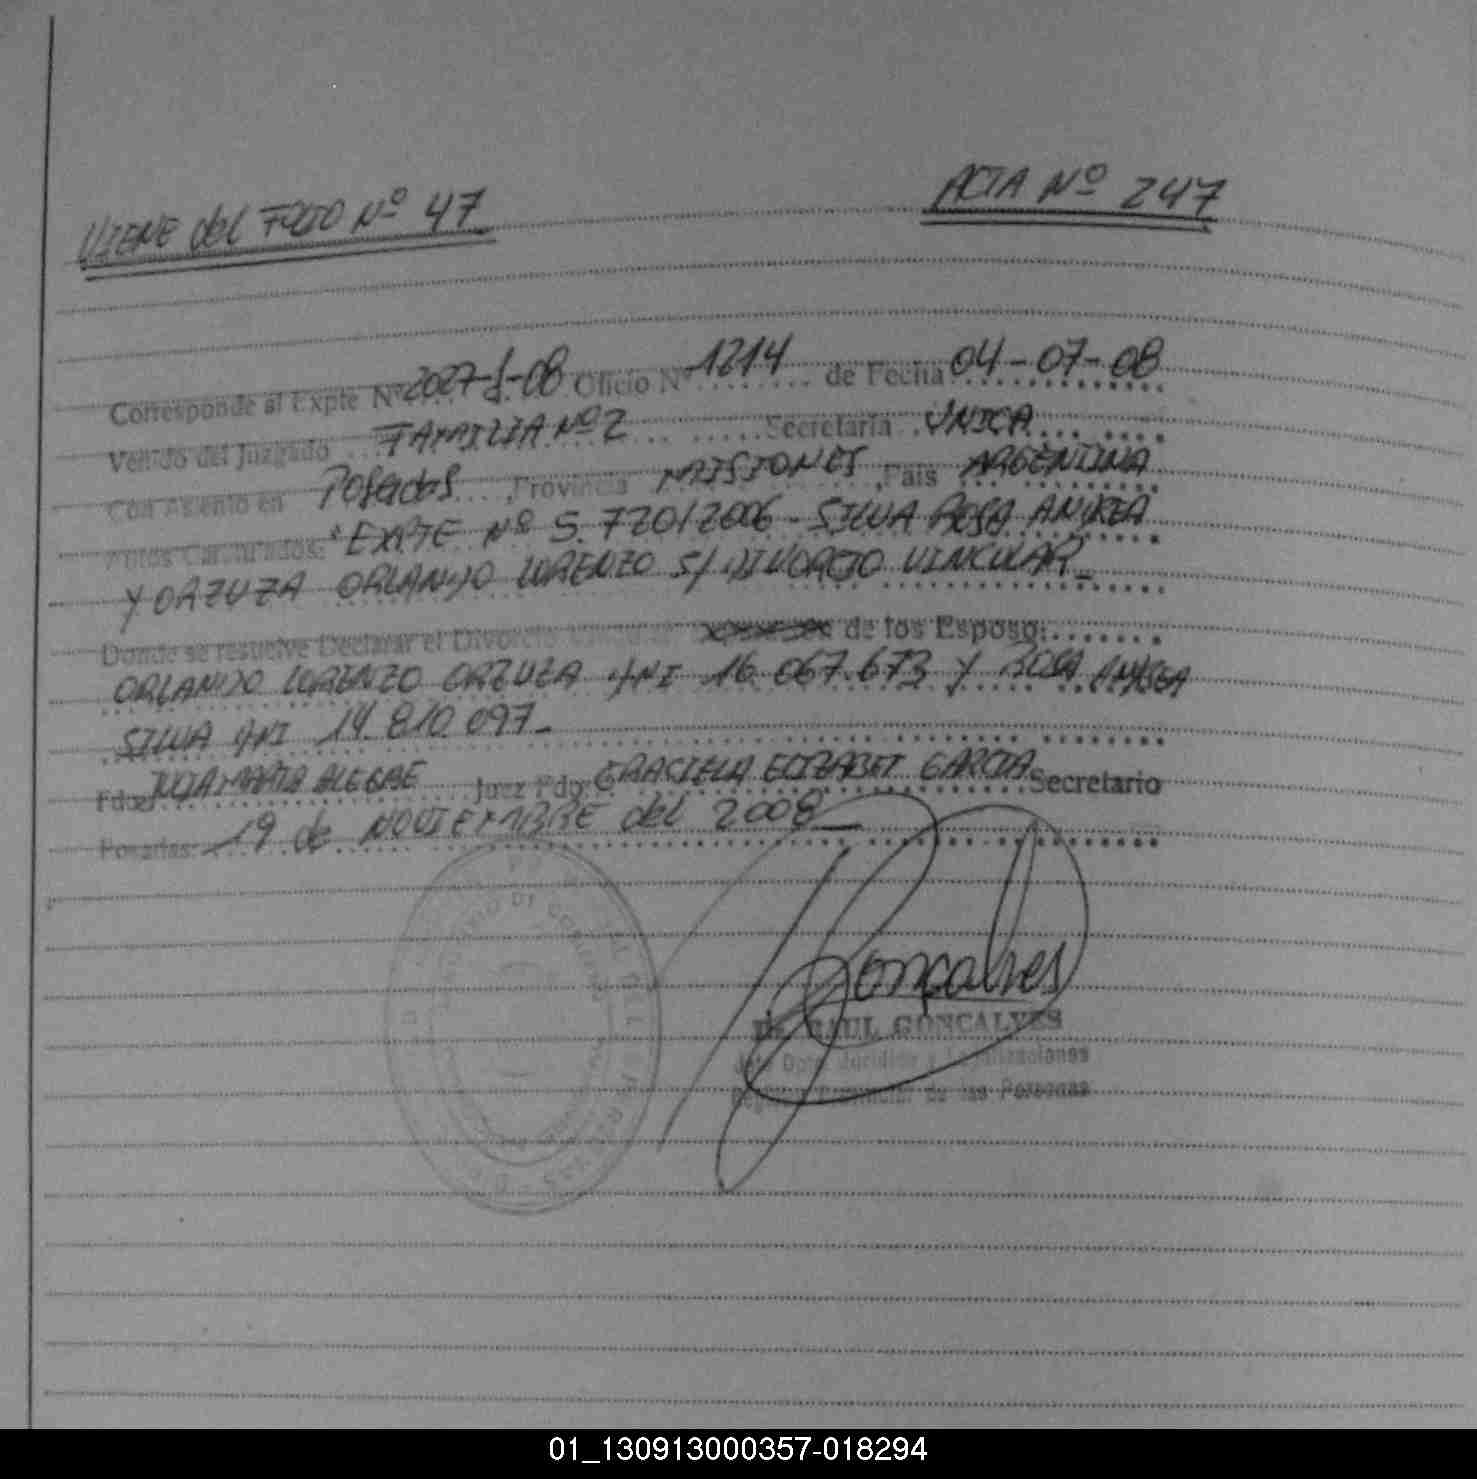 VIENE del FOLIO Nº 47
ACTA Nº 247
Corresponde al Expte Nº 2027-J-08 Oficio Nº 1214 de Fecha 04-07-08
Venido del Juzgado FAMILIA Nº 2 Secretaria UNICA
Con Asiento en Posadas, Provincia MISIONES, País ARGENTINA
Autos Caratulados: "EXPTE Nº S. 720/2006 - SILVA ROSA ANDREA
Y ORZUZA ORLANDO LORENZO S/ DIVORCIO VINCULAR_
Donde se resuelve Declarar el Divorcio de los Esposo:
ORLANDO LORENZO ORZUZA DNI 16.067.673 Y ROSA ANDREA
SILVA DNI 14.810.097_
Fdo: MARTA ALEGRE Juez Fdo: GRACIELA ELIZABET GARCIA Secretario
Posadas: 19 de NOVIEMBRE del 2008
Gonçalves
Dr. RAUL GONCALVES
Jefe Dpto. Jurídico y Legalizaciones
Registro Provincial de las Personas
01_130913000357-018294